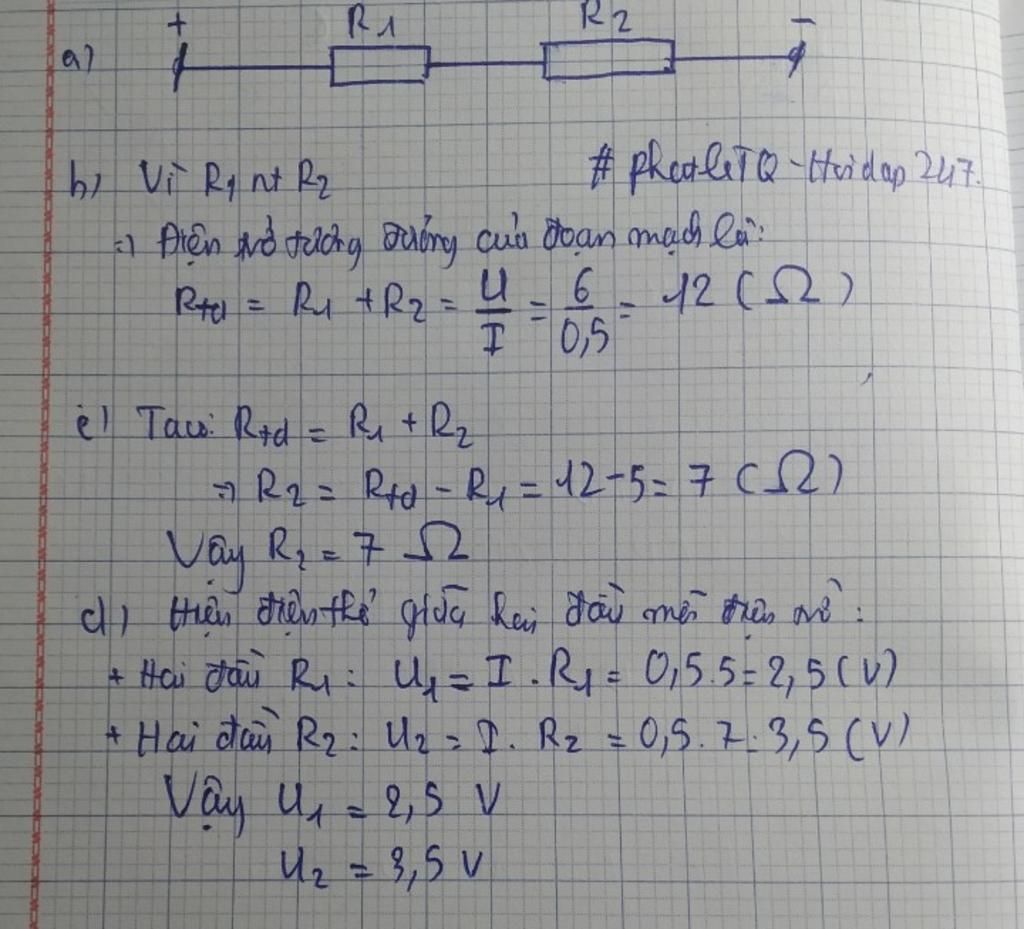 + R1 R2 -
a)
b) Vì R1 nt R2 # PhatleTQ - Hoidap 247.
=> Điện trở tương đương của đoạn mạch là:
Rtđ = R1 + R2 = U/I = 6/0,5 = 12 (Ω)
c) Ta có: Rtđ = R1 + R2
=> R2 = Rtđ - R1 = 12 - 5 = 7 (Ω)
Vậy R2 = 7 Ω
d) Hiệu điện thế giữa hai đầu mỗi điện trở:
+ Hai đầu R1: U1 = I . R1 = 0,5.5 = 2,5 (V)
+ Hai đầu R2: U2 = I. R2 = 0,5. 7 = 3,5 (V)
Vậy U1 = 2,5 V
U2 = 3,5 V